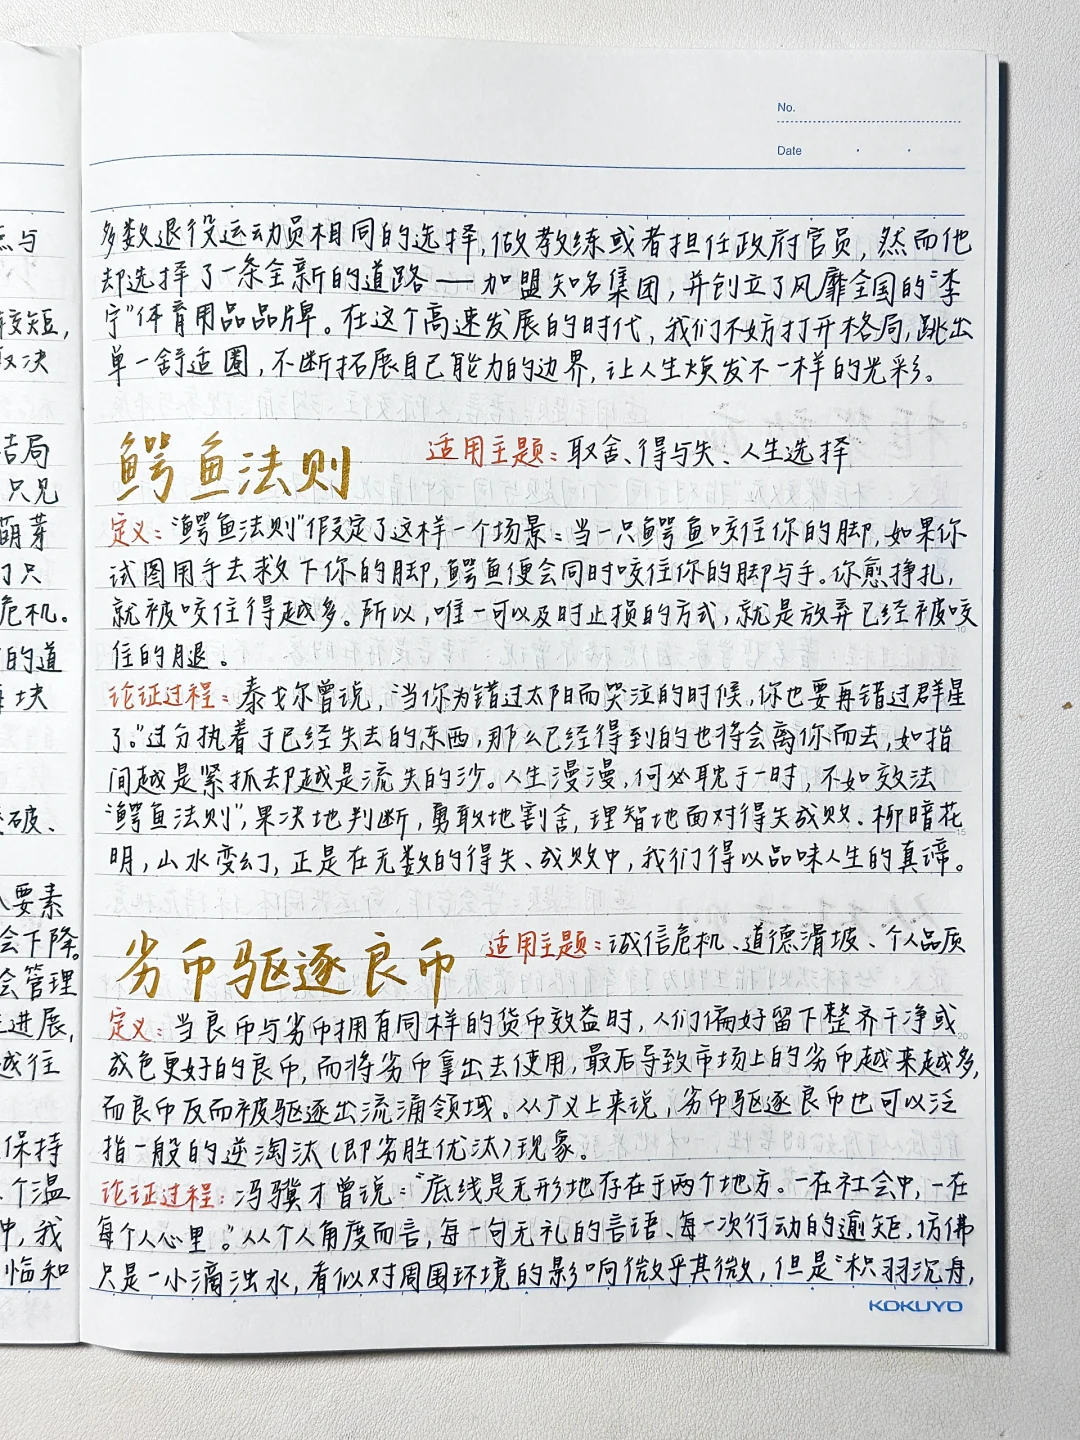 No.
Date
多数退役运动员相同的选择，做教练或者担任政府官员，然而他
却选择了一条全新的道路——加盟知名集团，并创立了风靡全国的“李
宁”体育用品品牌。在这个高速发展的时代，我们不妨打开格局，跳出
单一舒适圈，不断拓展自己能力的边界，让人生焕发不一样的光彩。
鳄鱼法则 适用主题：取舍、得与失、人生选择
定义：“鳄鱼法则”假定了这样一个场景：当一只鳄鱼咬住你的脚，如果你
试图用手去救下你的脚，鳄鱼便会同时咬住你的脚与手。你愈挣扎，
就被咬住得越多。所以，唯一可以及时止损的方式，就是放弃已经被咬
住的腿。
论证过程：泰戈尔曾说，“当你为错过太阳而哭泣的时候，你也要再错过群星
了。”过分执着于已经失去的东西，那么已经得到的也将会离你而去，如指
间越是紧抓却越是流失的沙。人生漫漫，何必耽于一时，不如效法
“鳄鱼法则”，果决地判断，勇敢地割舍，理智地面对得失成败。柳暗花
明，山水变幻，正是在无数的得失、成败中，我们得以品味人生的真谛。
劣币驱逐良币 适用主题：诚信危机、道德滑坡、个人品质
定义：当良币与劣币拥有同样的货币效益时，人们偏好留下整齐干净或
成色更好的良币，而将劣币拿出去使用，最后导致市场上的劣币越来越多，
而良币反而被驱逐出流涌领域。从广义上来说，劣币驱逐良币也可以泛
指一般的逆淘汰（即劣胜优汰）现象。
论证过程：冯骥才曾说：“底线是无形地存在于两个地方。一在社会中，一在
每个人心里。”从个人角度而言，每一句无礼的言语、每一次行动的逾矩，仿佛
只是一小滴浊水，看似对周围环境的影响微乎其微，但是“积羽沉舟，
KOKUYO
点与
较短，
取决
结局
只见
萌芽
们只
危机。
的道
每块
破、
人要素
会下降。
会管理
进展，
越往
保持
个温
中，我
临和